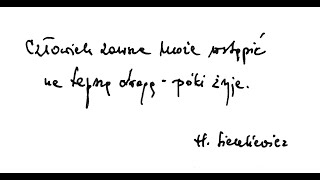 Człowiek zawsze może wstąpić
na lepszą drogę – póki żyje.
H. Sienkiewicz